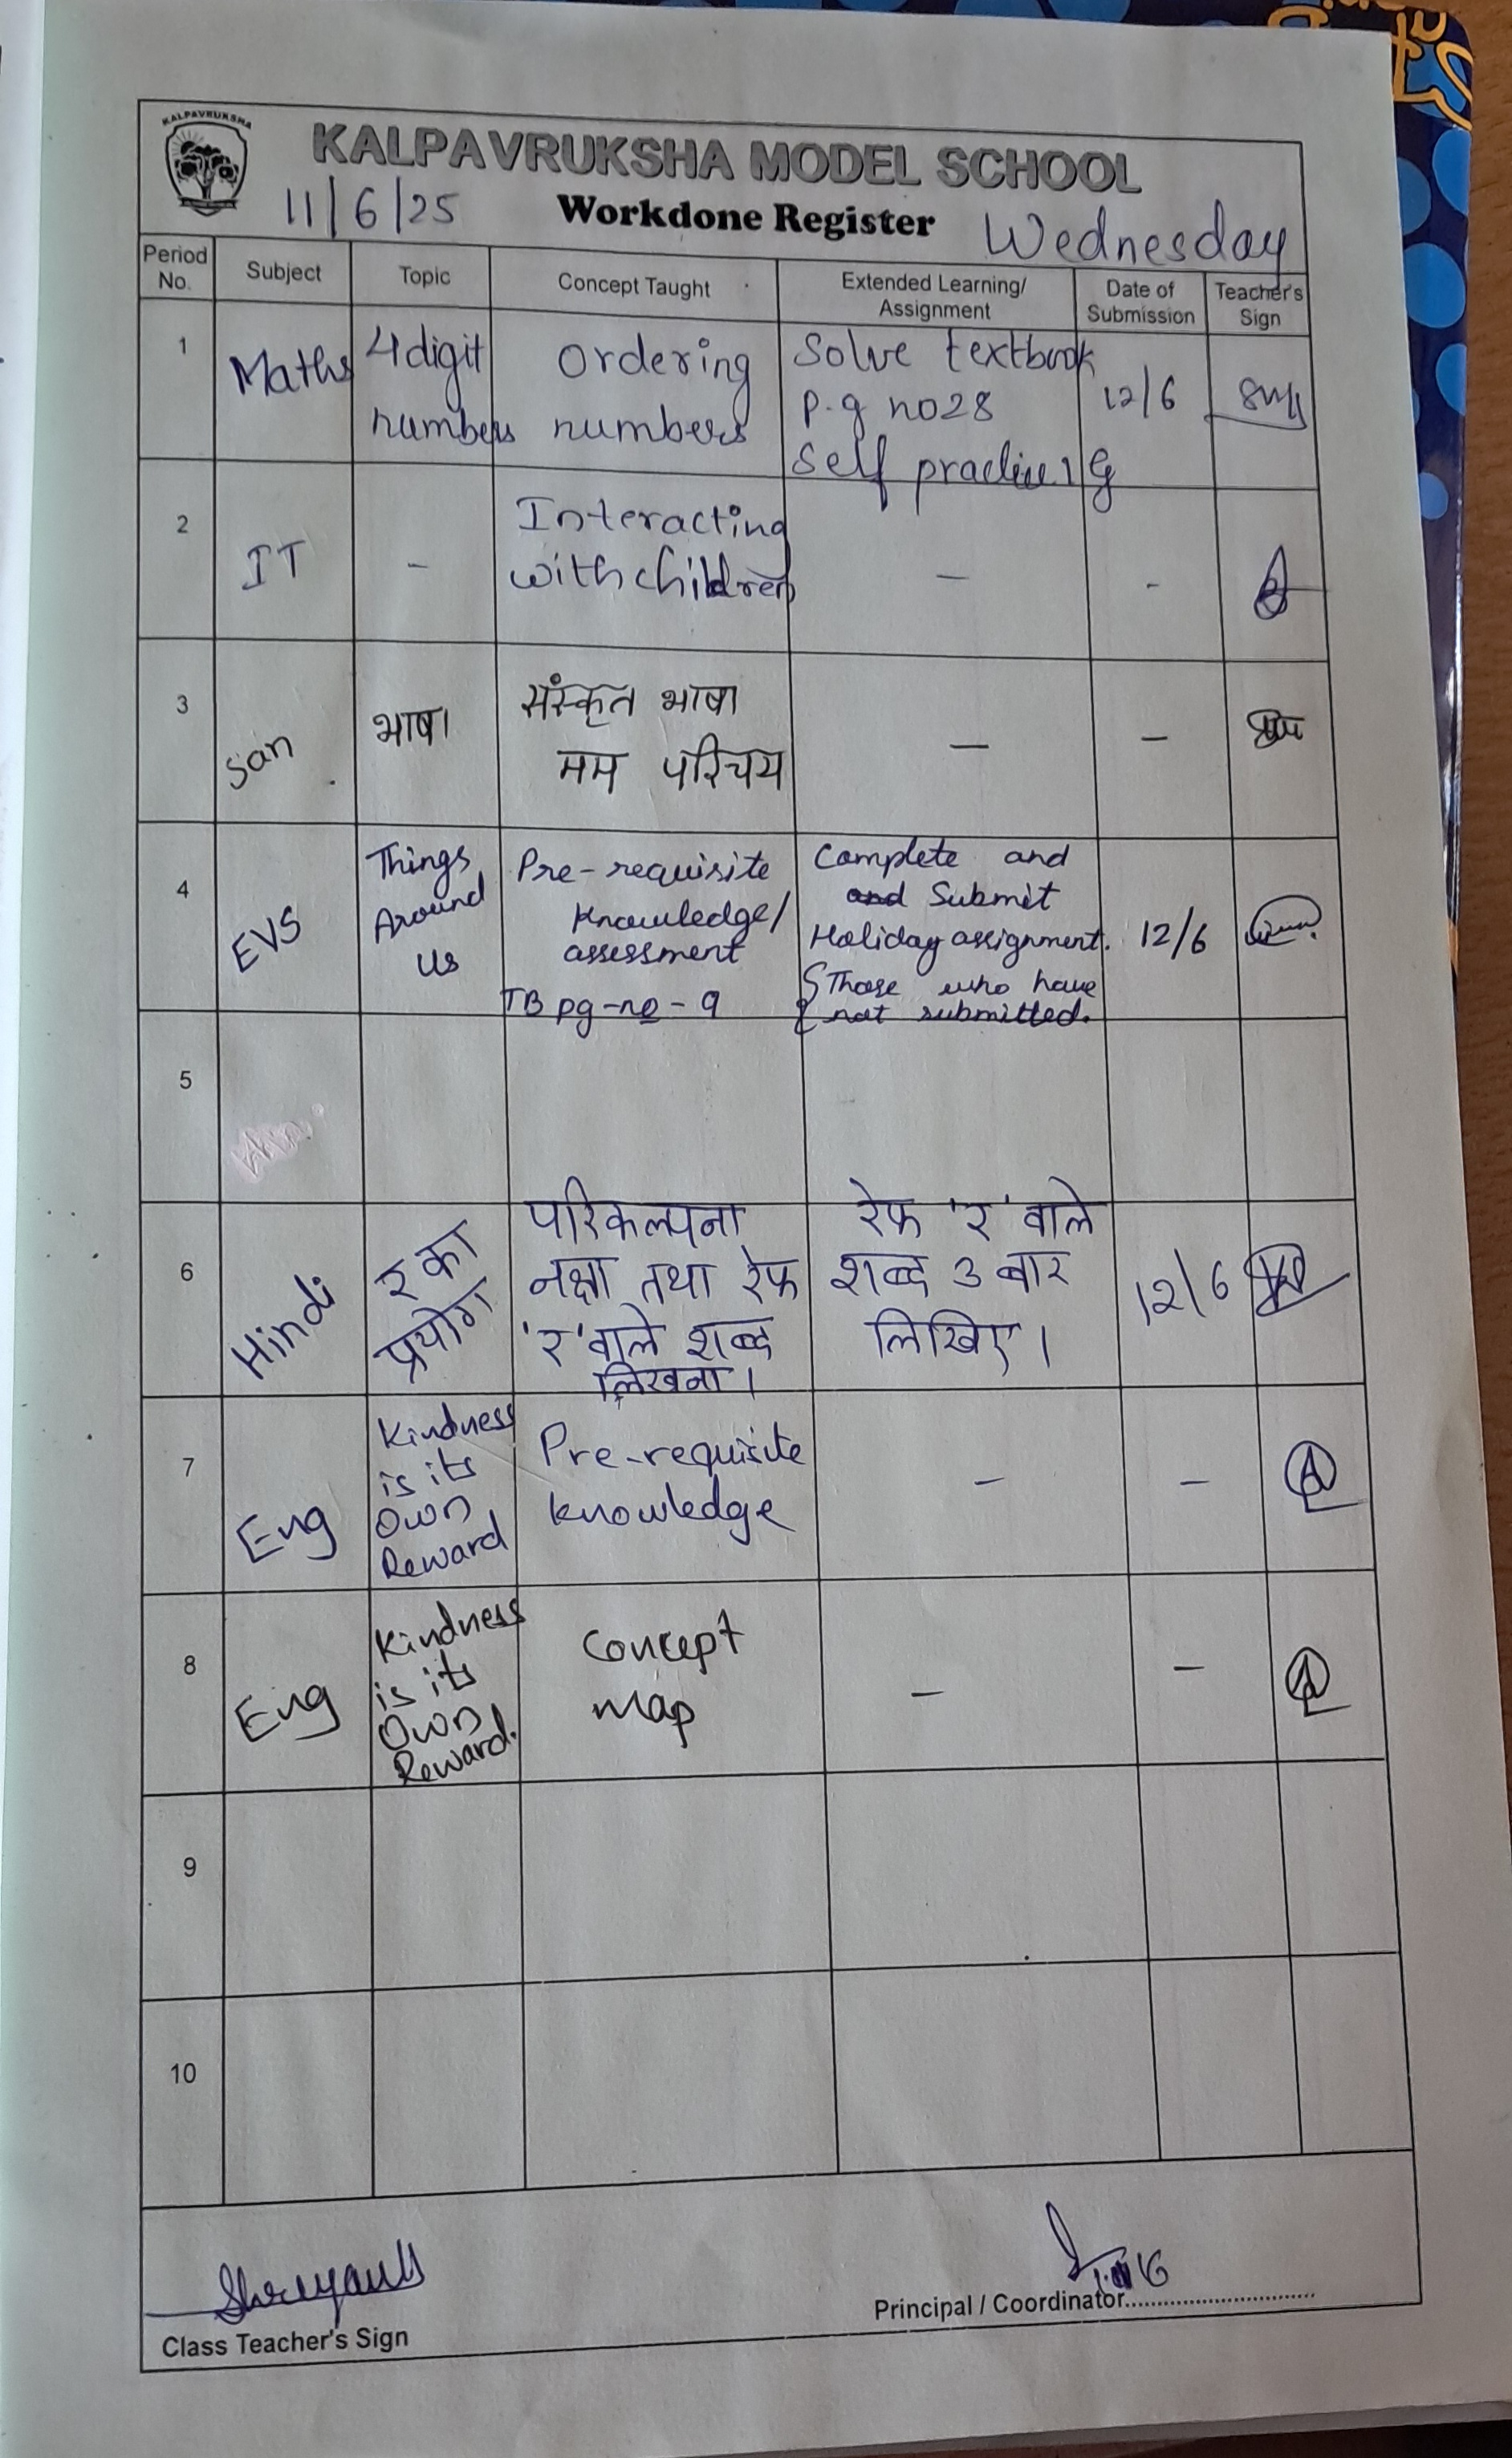 KALPAVRUKSHA
KALPAVRUKSHA MODEL SCHOOL
11/6/25 Workdone Register Wednesday
Period No. Subject Topic Concept Taught Extended Learning/ Assignment Date of Submission Teacher's Sign
1 Maths 4 digit numbers Ordering numbers Solve textbook
p.g no 28
Self practice 1 G 12/6
2 IT - Interacting
with children - -
3 San भाषा संस्कृत भाषा
मम परिचय - -
4 EVS Things
Around
Us Pre-requisite
Knowledge/
assessment
TB pg-no-9 Complete and
and Submit
Holiday assignment.
{Those who have
not submitted. 12/6
5
6 Hindi र का
प्रयोग परिकल्पना
नक्षा तथा रेफ
'र' वाले शब्द
लिखना। रेफ 'र' वाले
शब्द 3 बार
लिखिए। 12/6
7 Eng Kindness
is its
Own
Reward Pre-requisite
knowledge - -
8 Eng Kindness
is its
Own
Reward. Concept
Map - -
9
10
Class Teacher's Sign
Principal / Coordinator